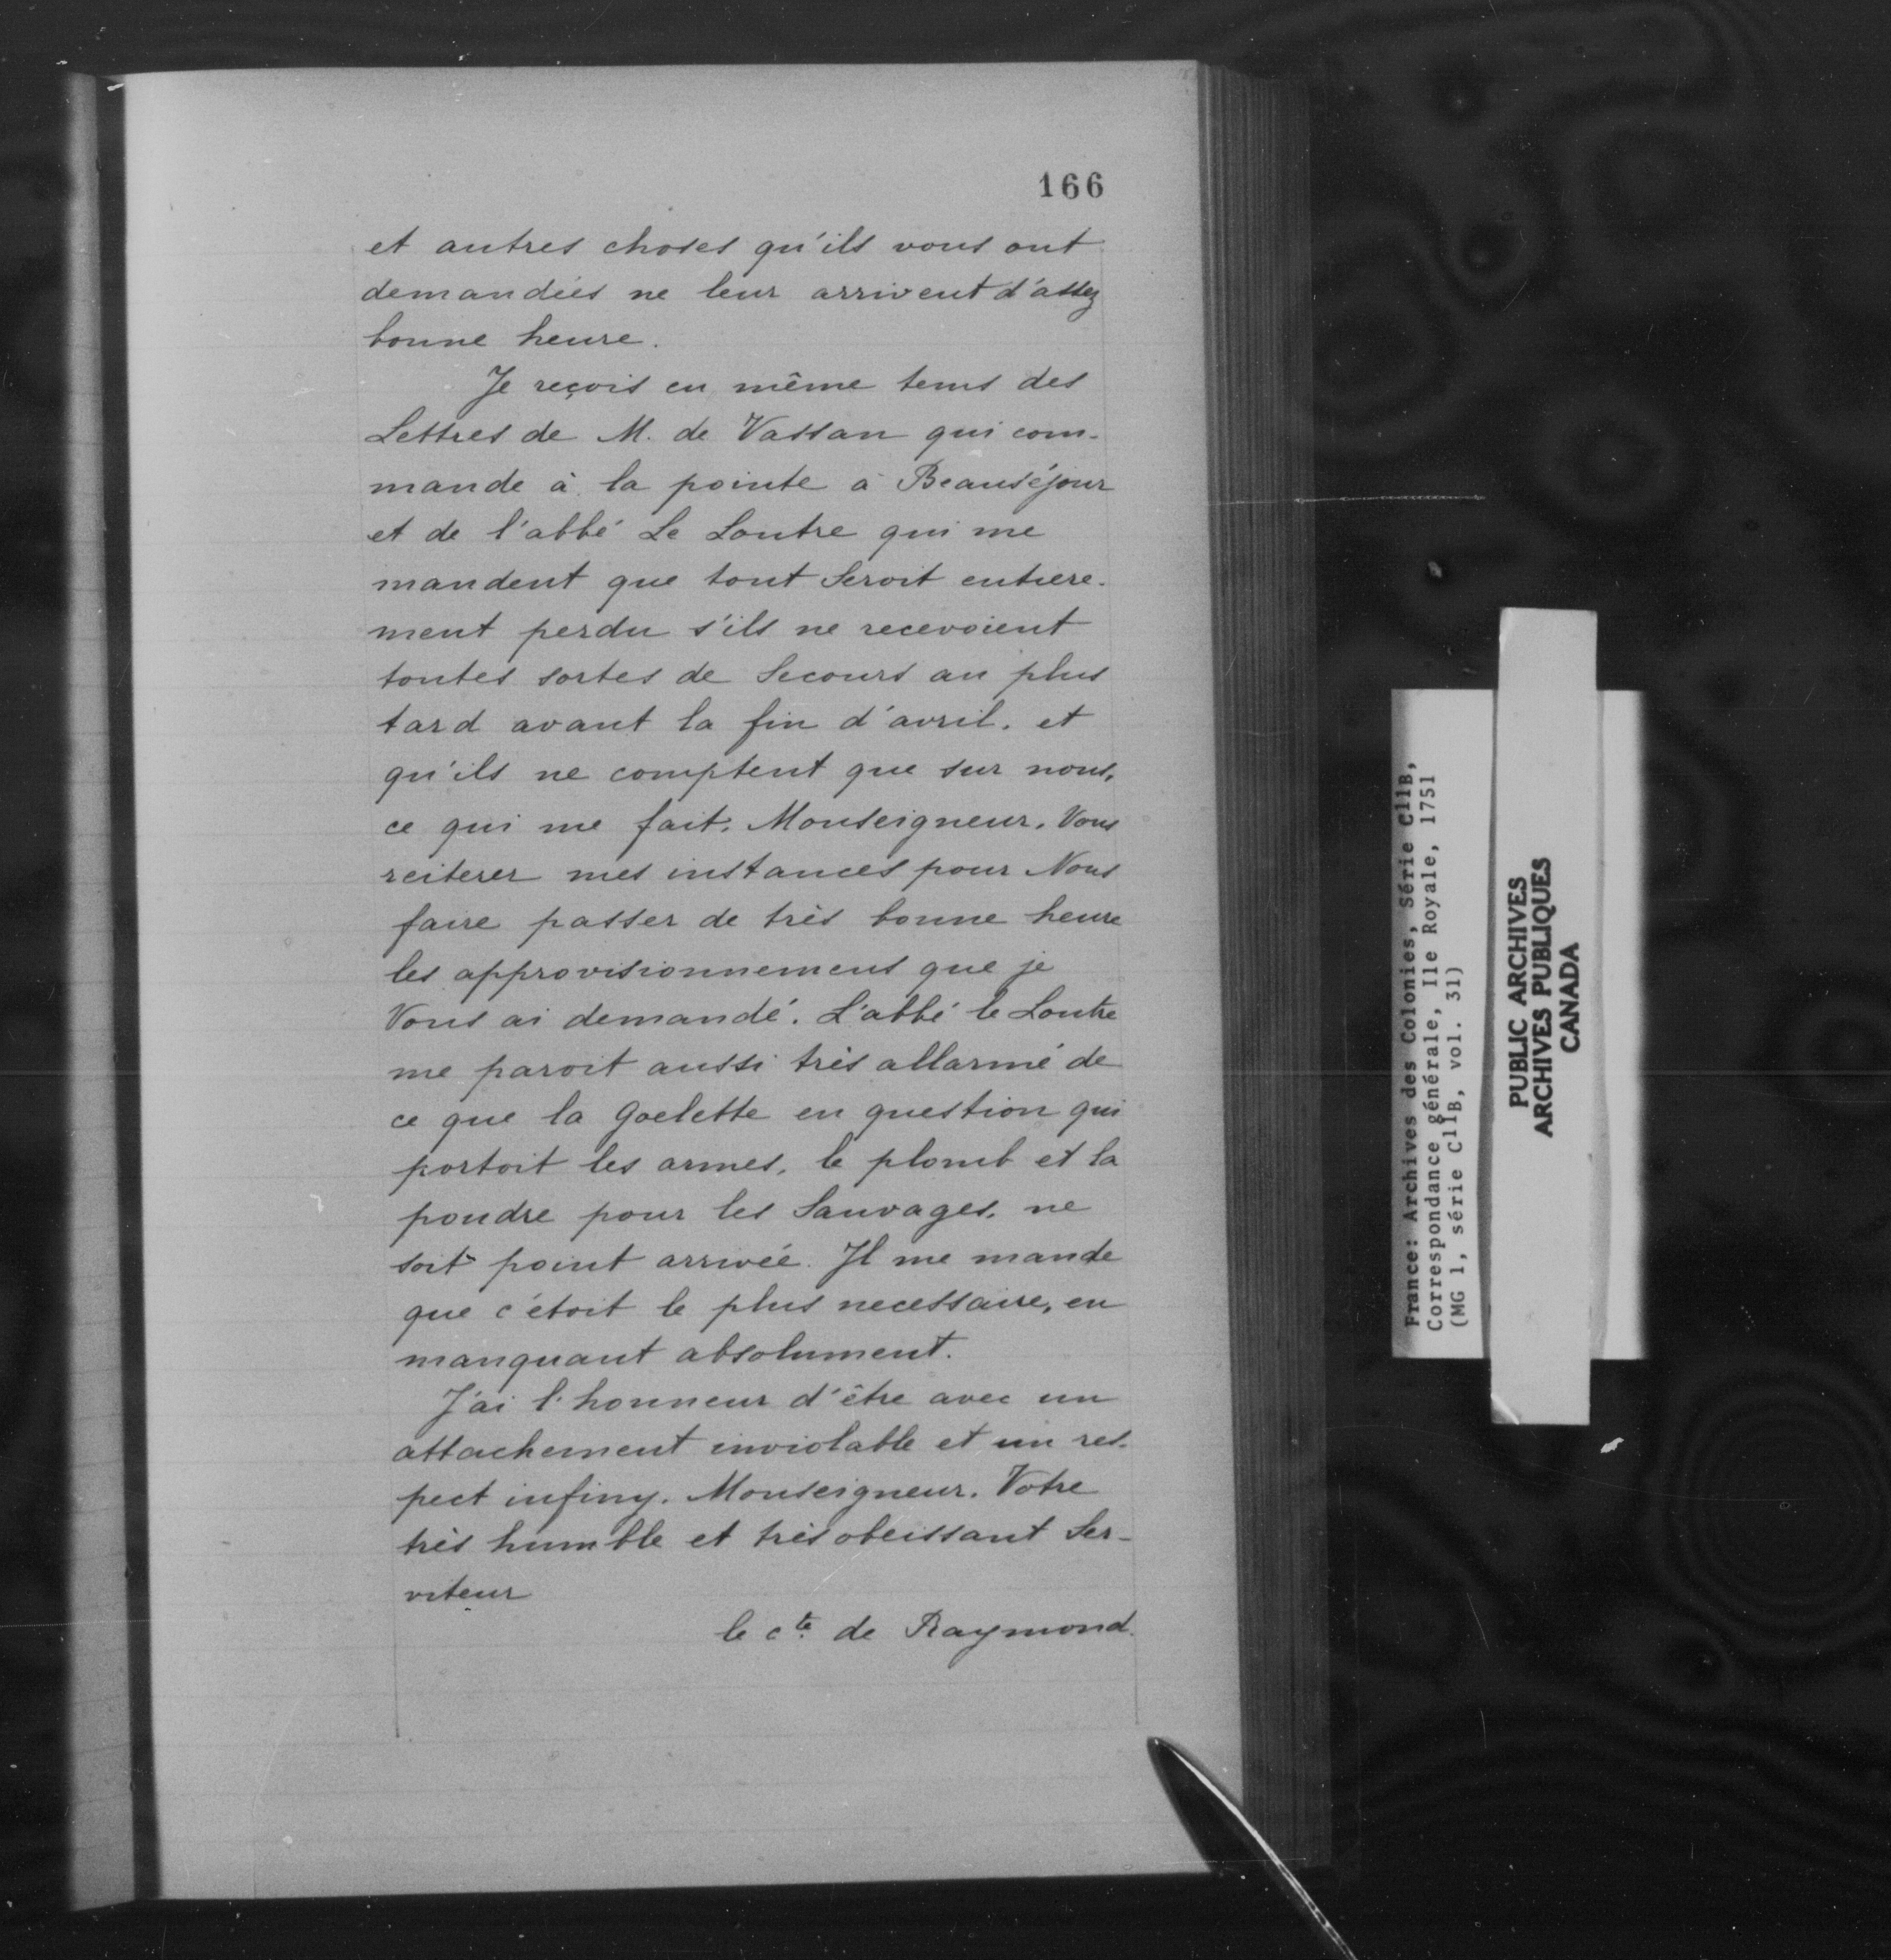 166
et autres choses qu'ils vous ont
demandées ne leur arrivent d'assez
bonne heure.
Je reçois en même tems des
Lettres de M. de Vassan qui com-
mande à la pointe à Beauséjour
et de l'abbé Le Loutre qui me
mandent que tout Seroit entiere-
ment perdu s'ils ne recevoient
toutes sortes de Secours au plus
tard avant la fin d'avril, et
qu'ils ne comptent que sur nous,
ce qui me fait, Monseigneur, Vous
reiterer mes instances pour Nous
faire passer de très bonne heure
les approvisionnemens que je
Vous ai demandé. L'abbé le Loutre
me paroit aussi très allarmé de
ce que la Goelette en question qui
portoit les armes, le plomb et la
poudre pour les Sauvages, ne
soit point arrivée. Il me mande
que c'étoit le plus necessaire, en
manquant absolument.
J'ai l'honneur d'être avec un
attachement inviolable et un res-
pect infiny, Monseigneur, Votre
très humble et très obeissant Ser-
viteur
le cte. de Raymond.
France: Archives des Colonies, Série C11B,
Correspondance générale, Ile Royale, 1751
(MG 1, série C11B, vol. 31)
PUBLIC ARCHIVES
ARCHIVES PUBLIQUES
CANADA